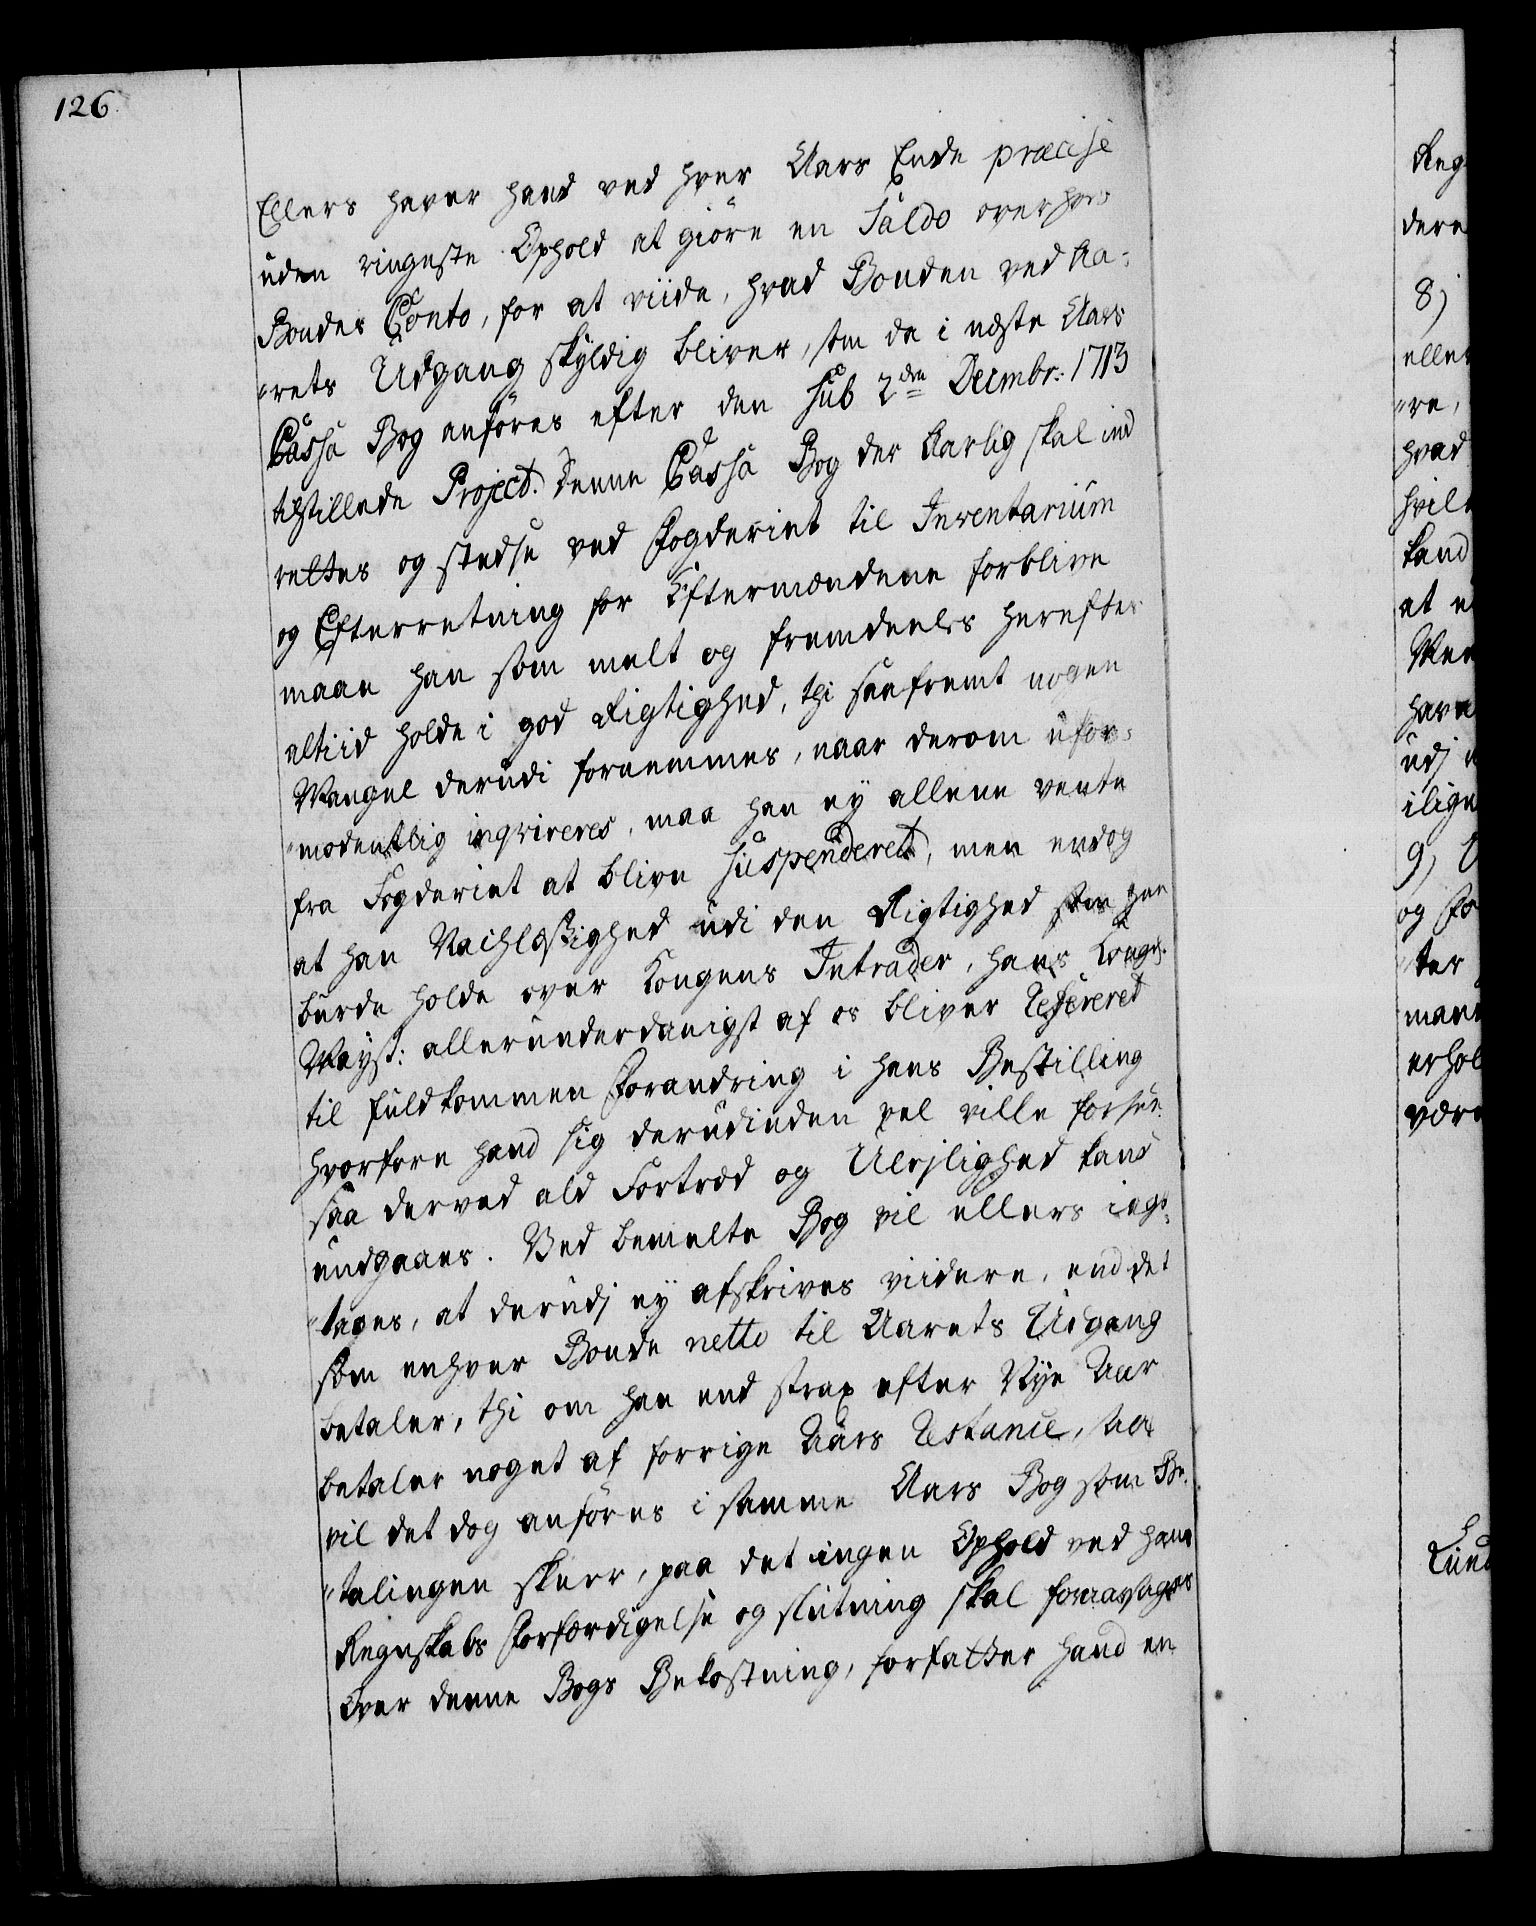 126
Ellers haver hand ved hver Aars Ende præcise
uden ringeste Ophold at giöre en Saldo over hver
Bondes Conto, for at viide, hvad Bonden ved Aa-
"rets Udgang skyldig bliver, som da i næste Aars
Cassa Bog anföres efter den sub 2den Decembr: 1713
tilstillede Project. Denne Cassa Bog der Aarlig skal ind
reltes og stedse ved Fogderiet til Inventarium
og Efterretning for Eftermændene forblive
maae han som melt og fremdeeles herefter
altiid holde i god Rigtighed, thi saafremt nogen
Mangel derudi fornemmes, naar derom ufor-
"modentlig inqvireres, maa han ey allene vente
fra Fogderiet at blive suspenderet, men endog
at han Nachlæssighed udi den Rigtighed som han
burde holde over Kongens Intrader, hans Kongl:
Mayst: allerunderdanigst af os bliver Refereret
til fuldkommen Forandring i hans Bestilling
hvorfore hand sig derudinden vel ville forsee
saa derved ald Fortræd og Uleylighed kand
undgaaes. Ved bemelte Bog vil ellers iagt-
"tages, at derudj ey afskrives viidere, end det
som enhver Bonde netto til Aarets Udgang
betaler, thi om han end strax efter Nye Aar
betaler noget af forrige Aars Restance, saa
vil det dog anföres i samme Aars Bog som Be-
"talingen skeer, paa det ingen Ophold ved hans
Regnskabs Forfærdigelse og slutning skal foraarsages
Over denne Bogs Bekostning, forfatter hand en
Reg
dere
8)
eller
"re,
hvad
hvilk
kand
at e
Men
have
udj
9)
og Fo
"ter
man
erhol
være